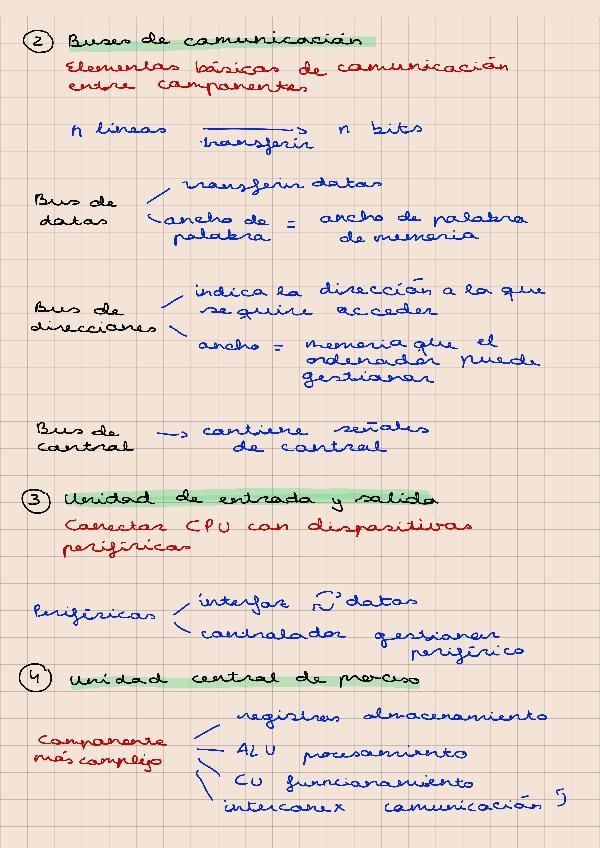 ② Buses de comunicación
Elementos básicos de comunicación
entre componentes
n líneas → n bits
transferir
Bus de
datos
transferir datos
ancho de = ancho de palabra
palabra de memoria
Bus de
direcciones
indica la dirección a la que
se quire acceder
ancho = memoria que el
ordenador puede
gestionar
Bus de → contiene señales
control de control
③ Unidad de entrada y salida
Conectar CPU con dispositivos
periféricos
Periféricos
interfaz datos
controlador gestionar
periférico
④ Unidad central de proceso
Componente
más complejo
registros almacenamiento
ALU procesamiento
CU funncionamiento
interconex comunicación